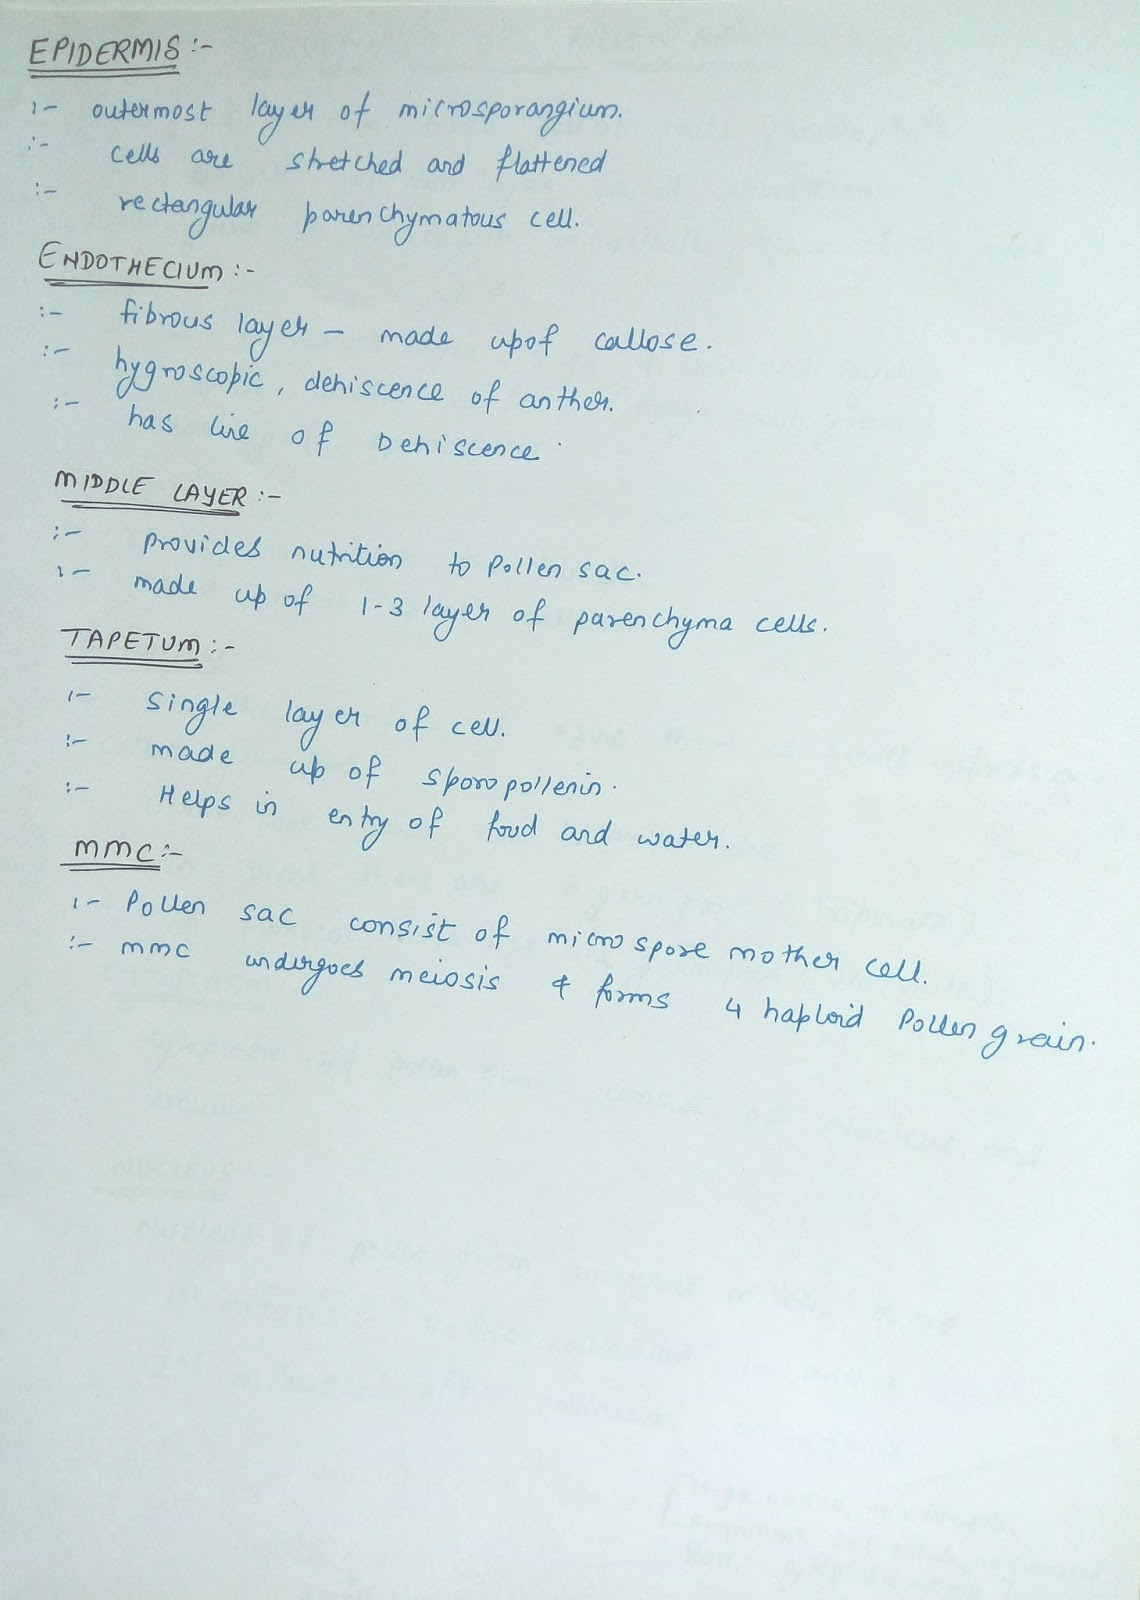 EPIDERMIS :-
:- outermost layer of microsporangium.
:- cells are stretched and flattened
:- rectangular parenchymatous cell.
ENDOTHECIUM :-
:- fibrous layer - made upof callose.
:- hygroscopic, dehiscence of anther.
:- has line of Dehiscence
MIDDLE LAYER :-
:- Provides nutrition to Pollen sac.
:- made up of 1-3 layer of parenchyma cells.
TAPETUM :-
:- single layer of cell.
:- made up of sporopollenin.
:- Helps in entry of food and water.
MMC :-
:- Pollen sac consist of microspore mother cell.
:- mmc undergoes meiosis & forms 4 haploid Pollen grain.